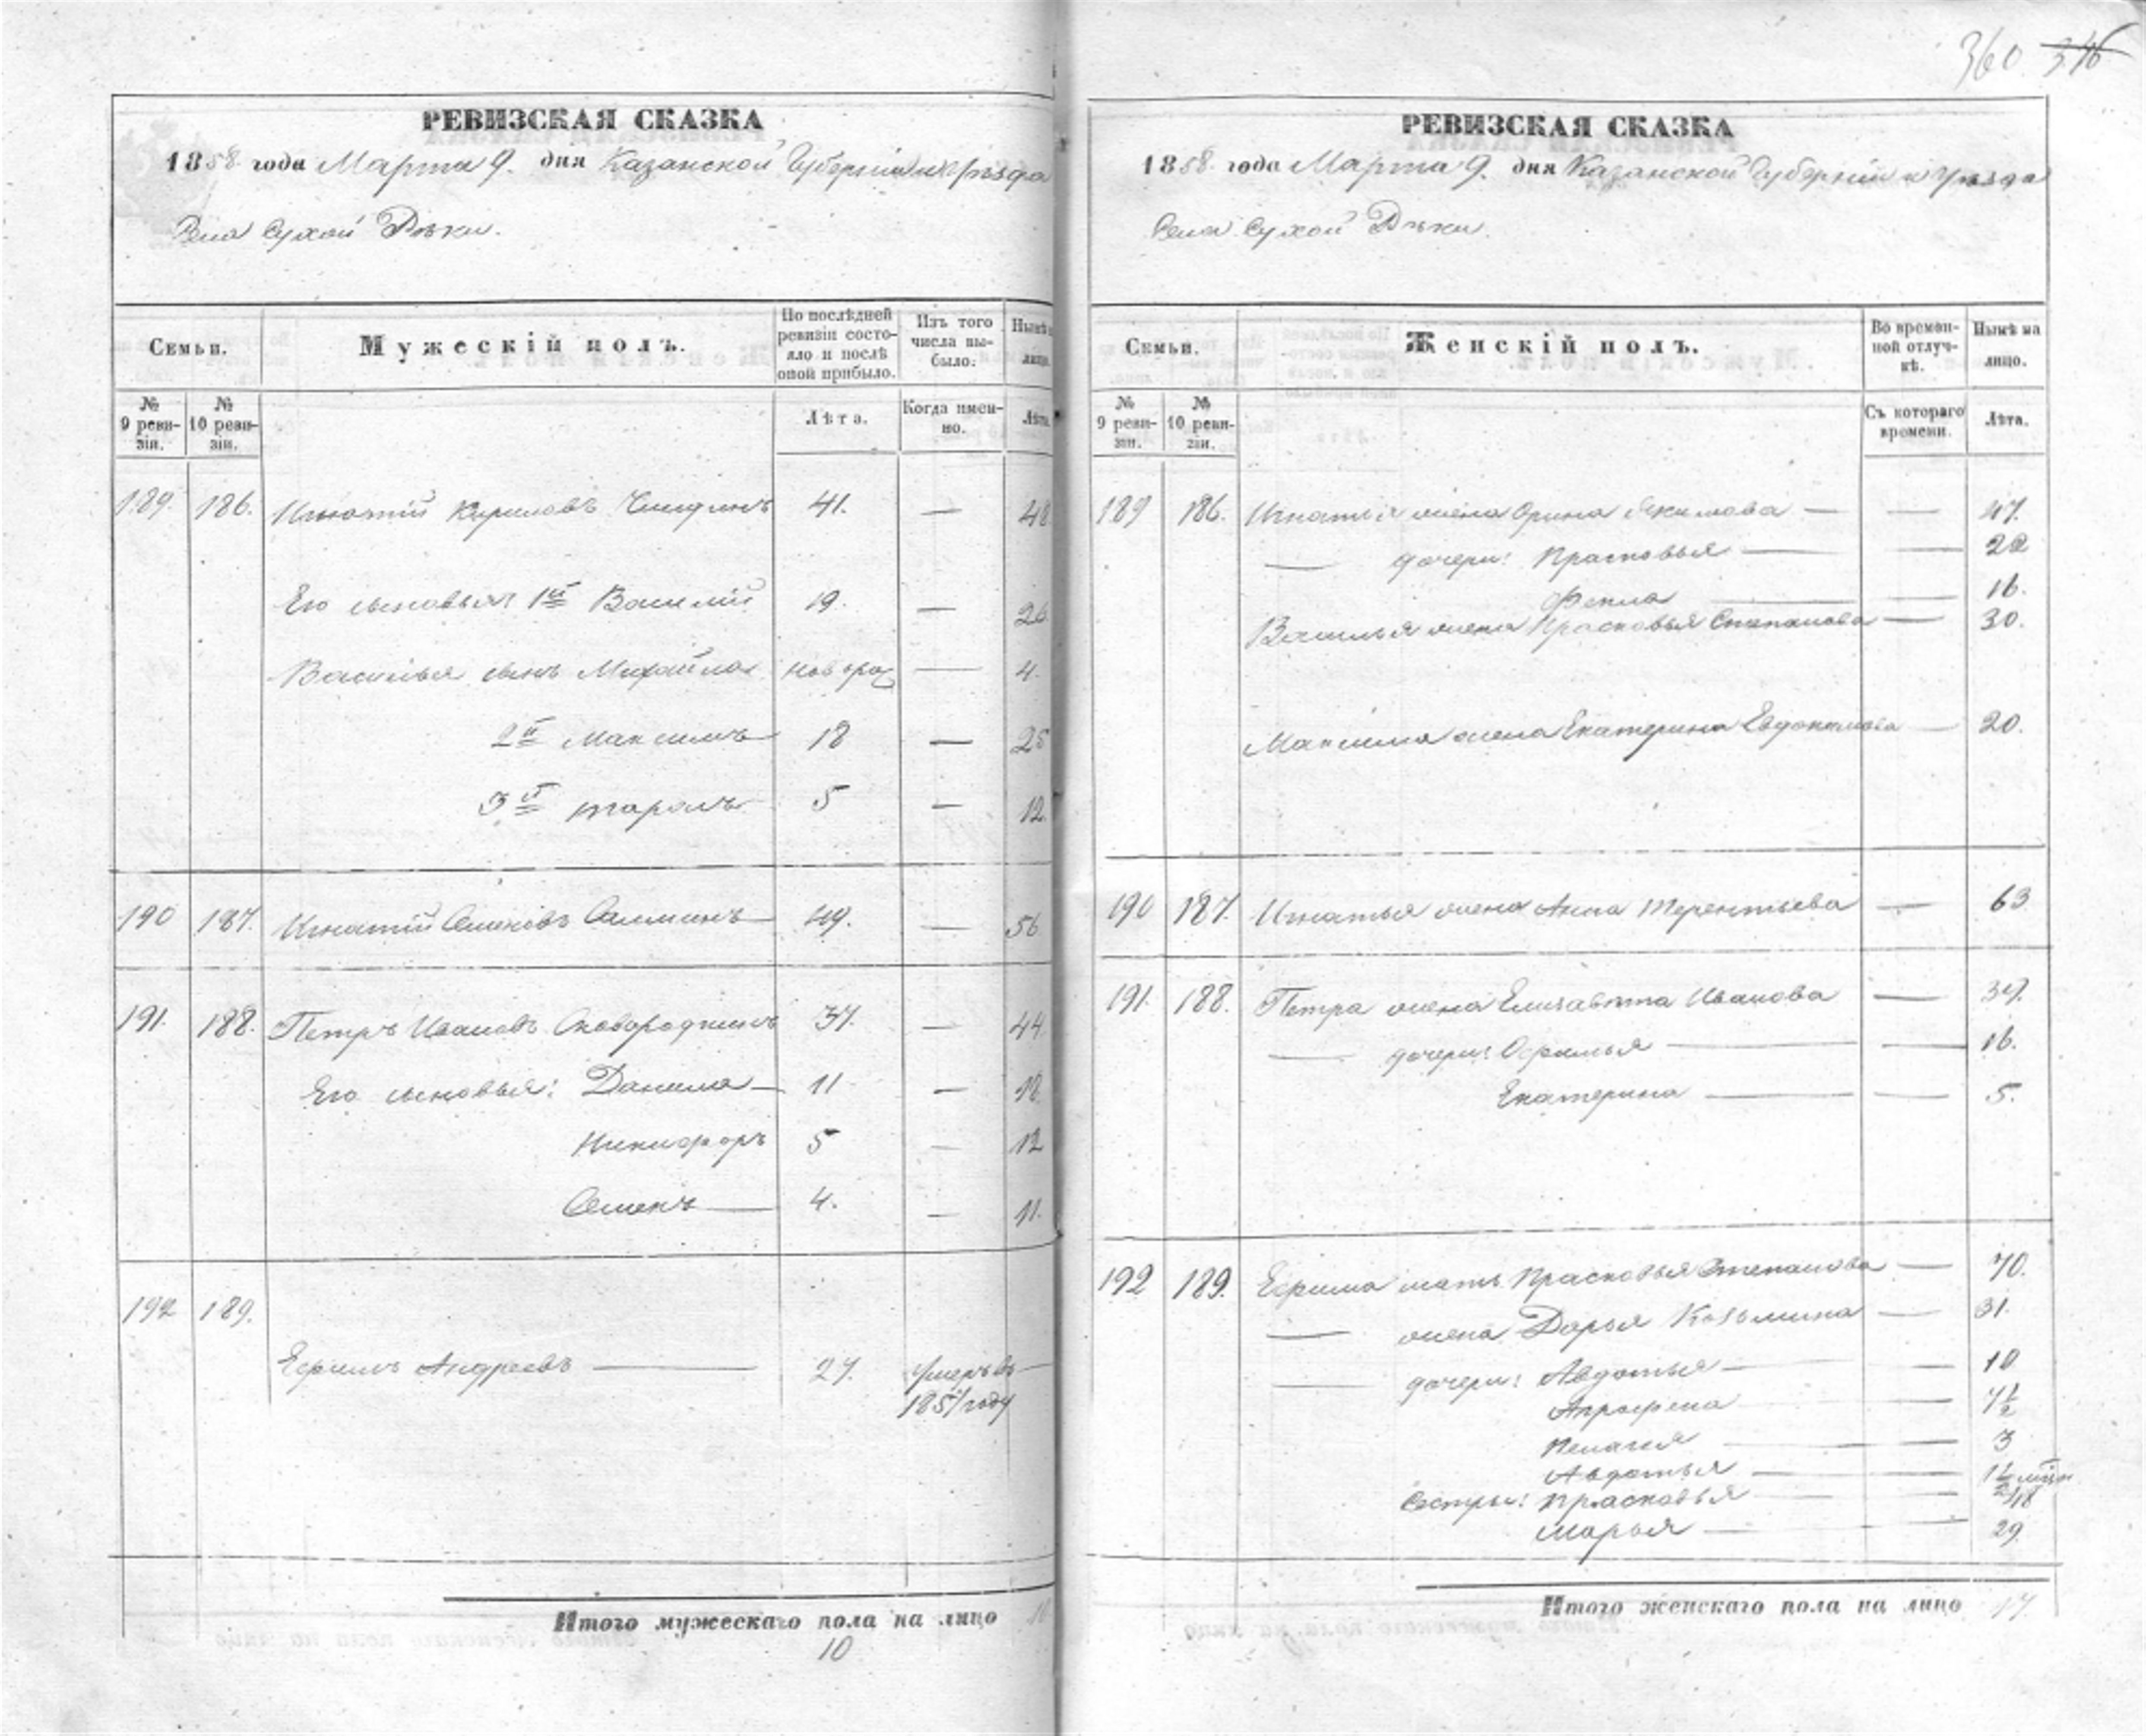 360 346
РЕВИЗСКАЯ СКАЗКА
1858 года Марта 9. дня Казанской Губерніи и Уѣзда
Села Сухой Рѣки.
Семьи.
Мужескій полъ.
По послѣдней ревизіи состояло и послѣ оной прибыло.
Изъ того числа выбыло.
Нынѣ на лицо.
№ 9 ревизіи.
№ 10 ревизіи.
Лѣта.
Когда именно.
Лѣта.
189. 186. Игнатій Кириловъ 41. — 48
Его сыновья 1й Василій 19. — 26
Василья сынъ Михайла новорож — 4.
2й Максимъ 18 — 25
3й 5 — 12.
190 187. Игнатій Семеновъ 49. — 56
191. 188. Петръ Ивановъ Сковородкинъ 37. — 44.
Его сыновья: Данила — 11 — 18.
Никифоръ 5 — 12
Семенъ — 4. — 11.
192 189.
Ефимъ Андреевъ — 27. Умеръ въ —
1851 году
Итого мужескаго пола на лицо 10
10
РЕВИЗСКАЯ СКАЗКА
1858. года Марта 9. дня Казанской Губерніи и Уѣзда
Села Сухой Рѣки.
Семьи.
Женскій полъ.
Во временной отлучкѣ.
Нынѣ на лицо.
№ 9 ревизіи.
№ 10 ревизіи.
Съ котораго времени.
Лѣта.
189 186. Игнатья жена Орина Якимова — — 47.
— дочери: Прасковья — — 22
Фекла — — 16.
Василья жена Прасковья Степанова — 30.
Максима жена Екатерина Евдокимова — 20.
190 187. Игнатья жена Анна Терентьева — 63
191. 188. Петра жена Елизавѣта Иванова — 39.
— дочери: Офимья — — 16.
Екатерина — — 5.
192 189. Ефима мать Прасковья Степанова — 70.
— жена Дарья Козьмина — 31.
— дочери: Авдотья — — 10
Апрофена — 7½
Пелагея — — 3
Авдотья — — 1½
Сестры: Прасковья — — 18
Марья — — 29.
Итого женскаго пола на лицо 17.